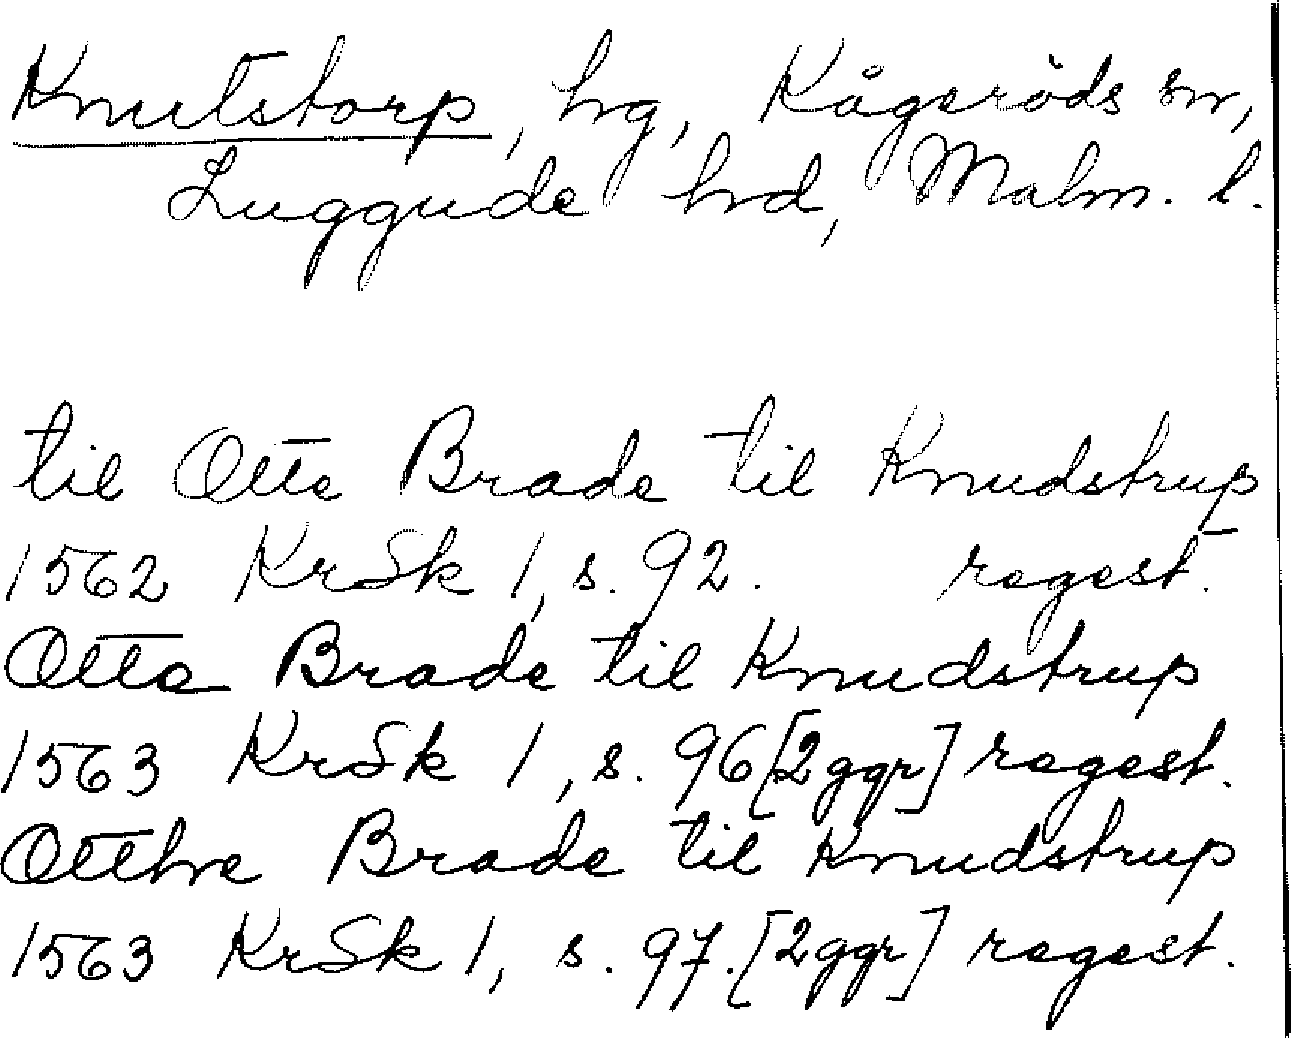 Knutstorp, hrg, Kågeröds sn,
Luggude hrd, Malm. l.
til Otte Brade til Knudstrup
1562 KrSk 1, s. 92. regest.
Otte Brade til Knudstrup
1563 KrSk 1, s. 96 [2 ggr] regest.
Otthe Brade til Knudstrup
1563 KrSk 1, s. 97. [2 ggr] regest.